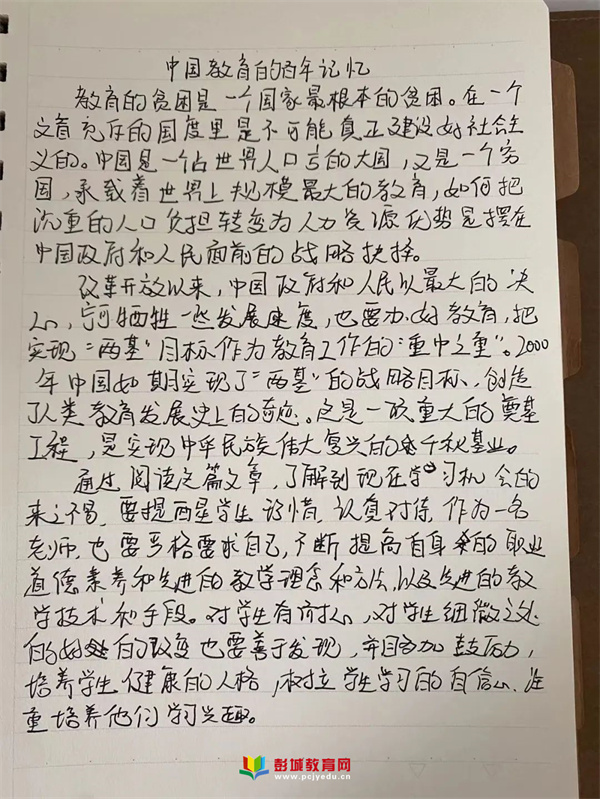 中国教育的百年记忆
教育的贫困是一个国家最根本的贫困。在一个
文盲充斥的国度里是不可能真正建设好社会主
义的。中国是一个占世界人口的大国，又是一个穷
国，承载着世界上规模最大的教育，如何把
沉重的人口负担转变为人力资源优势是摆在
中国政府和人民面前的战略抉择。
改革开放以来，中国政府和人民以最大的决
心，宁可牺牲一些发展速度，也要办好教育，把
实现“两基”目标作为教育工作的“重中之重”。2000
年中国如期实现了“两基”的战略目标、创造
了人类教育发展史上的奇迹。这是一项重大的奠基
工程，是实现中华民族伟大复兴的千秋基业。
通过阅读这篇文章，了解到现在学习机会的
来之不易，要提醒学生珍惜，认真对待，作为一名
老师，也要严格要求自己，不断提高自身的职业
道德素养和先进的教学理念和方法，以及先进的教
学技术和手段。对学生有耐心，对学生细微之处
的好的改变也要善于发现，并且多加鼓励，
培养学生健康的人格，树立学生学习的自信心，注
重培养他们学习兴趣。
彭城教育网
www.pcjyedu.cn